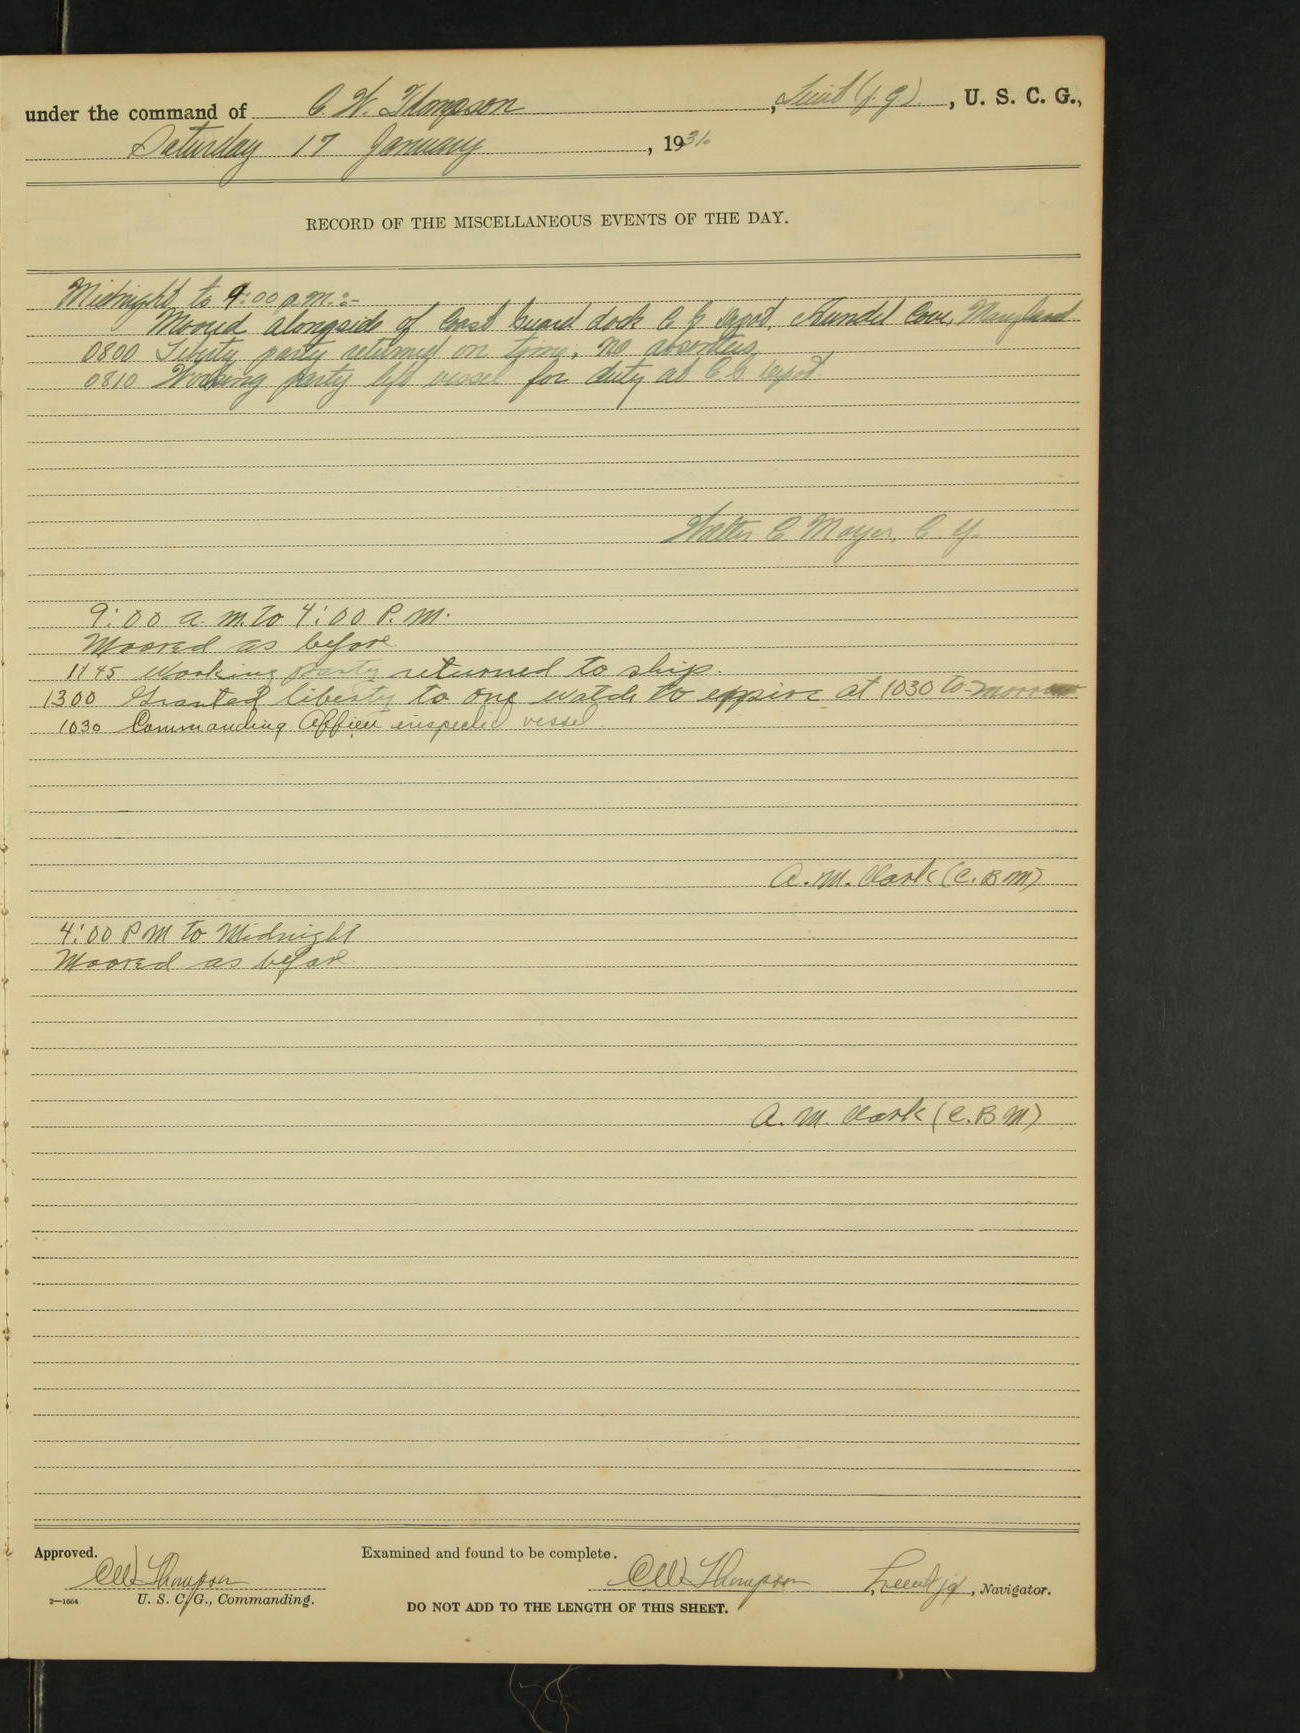 under the command of C. W. Thompson, Lieut (j.g.), U. S. C. G.,
Saturday 17 January, 1931.
RECORD OF THE MISCELLANEOUS EVENTS OF THE DAY.
Midnight to 9:00 a.m.:-
Moored alongside of Coast Guard dock C G Depot, Arundel Cove, Maryland
0800 Liberty party returned on time, no absentees
0810 Working party left vessel for duty at C G Depot
Walter C Mayer, C. Y.
9:00 a. m. to 4:00 P. M.
Moored as before
1145 Working party returned to ship.
1300 Granted liberty to one watch to expire at 1030 to-morrow
1030 Commanding Officer inspected vessel
A. M. Clark (C. B M)
4:00 PM to Midnight
Moored as before
A. M. Clark (C. B M)
Approved. Examined and found to be complete.
CW Thompson CW Thompson Lieut jg, Navigator.
2—1664 U. S. C. G., Commanding.
DO NOT ADD TO THE LENGTH OF THIS SHEET.